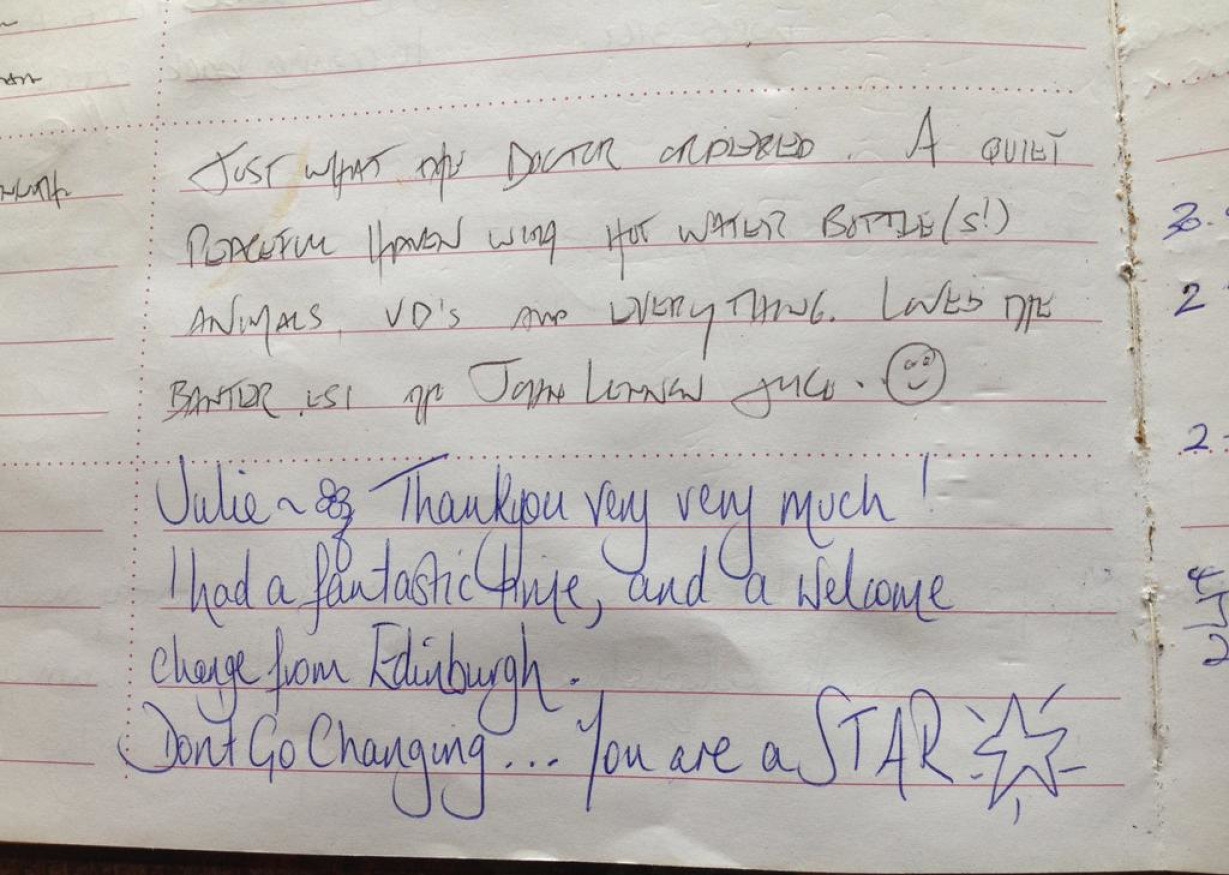 JUST WHAT THE DOCTOR ORDERED. A QUIET
PEACEFUL HAVEN WITH HOT WATER BOTTLE(S!)
ANIMALS, VD'S AND EVERYTHING. LOVED THE
BANTER THE JOHN LENNON JUICE.
Julie ~ Thankyou very very much!
I had a fantastic time, and a welcome
change from Edinburgh.
Dont Go Changing... You are a STAR
30.
2
2
4
2